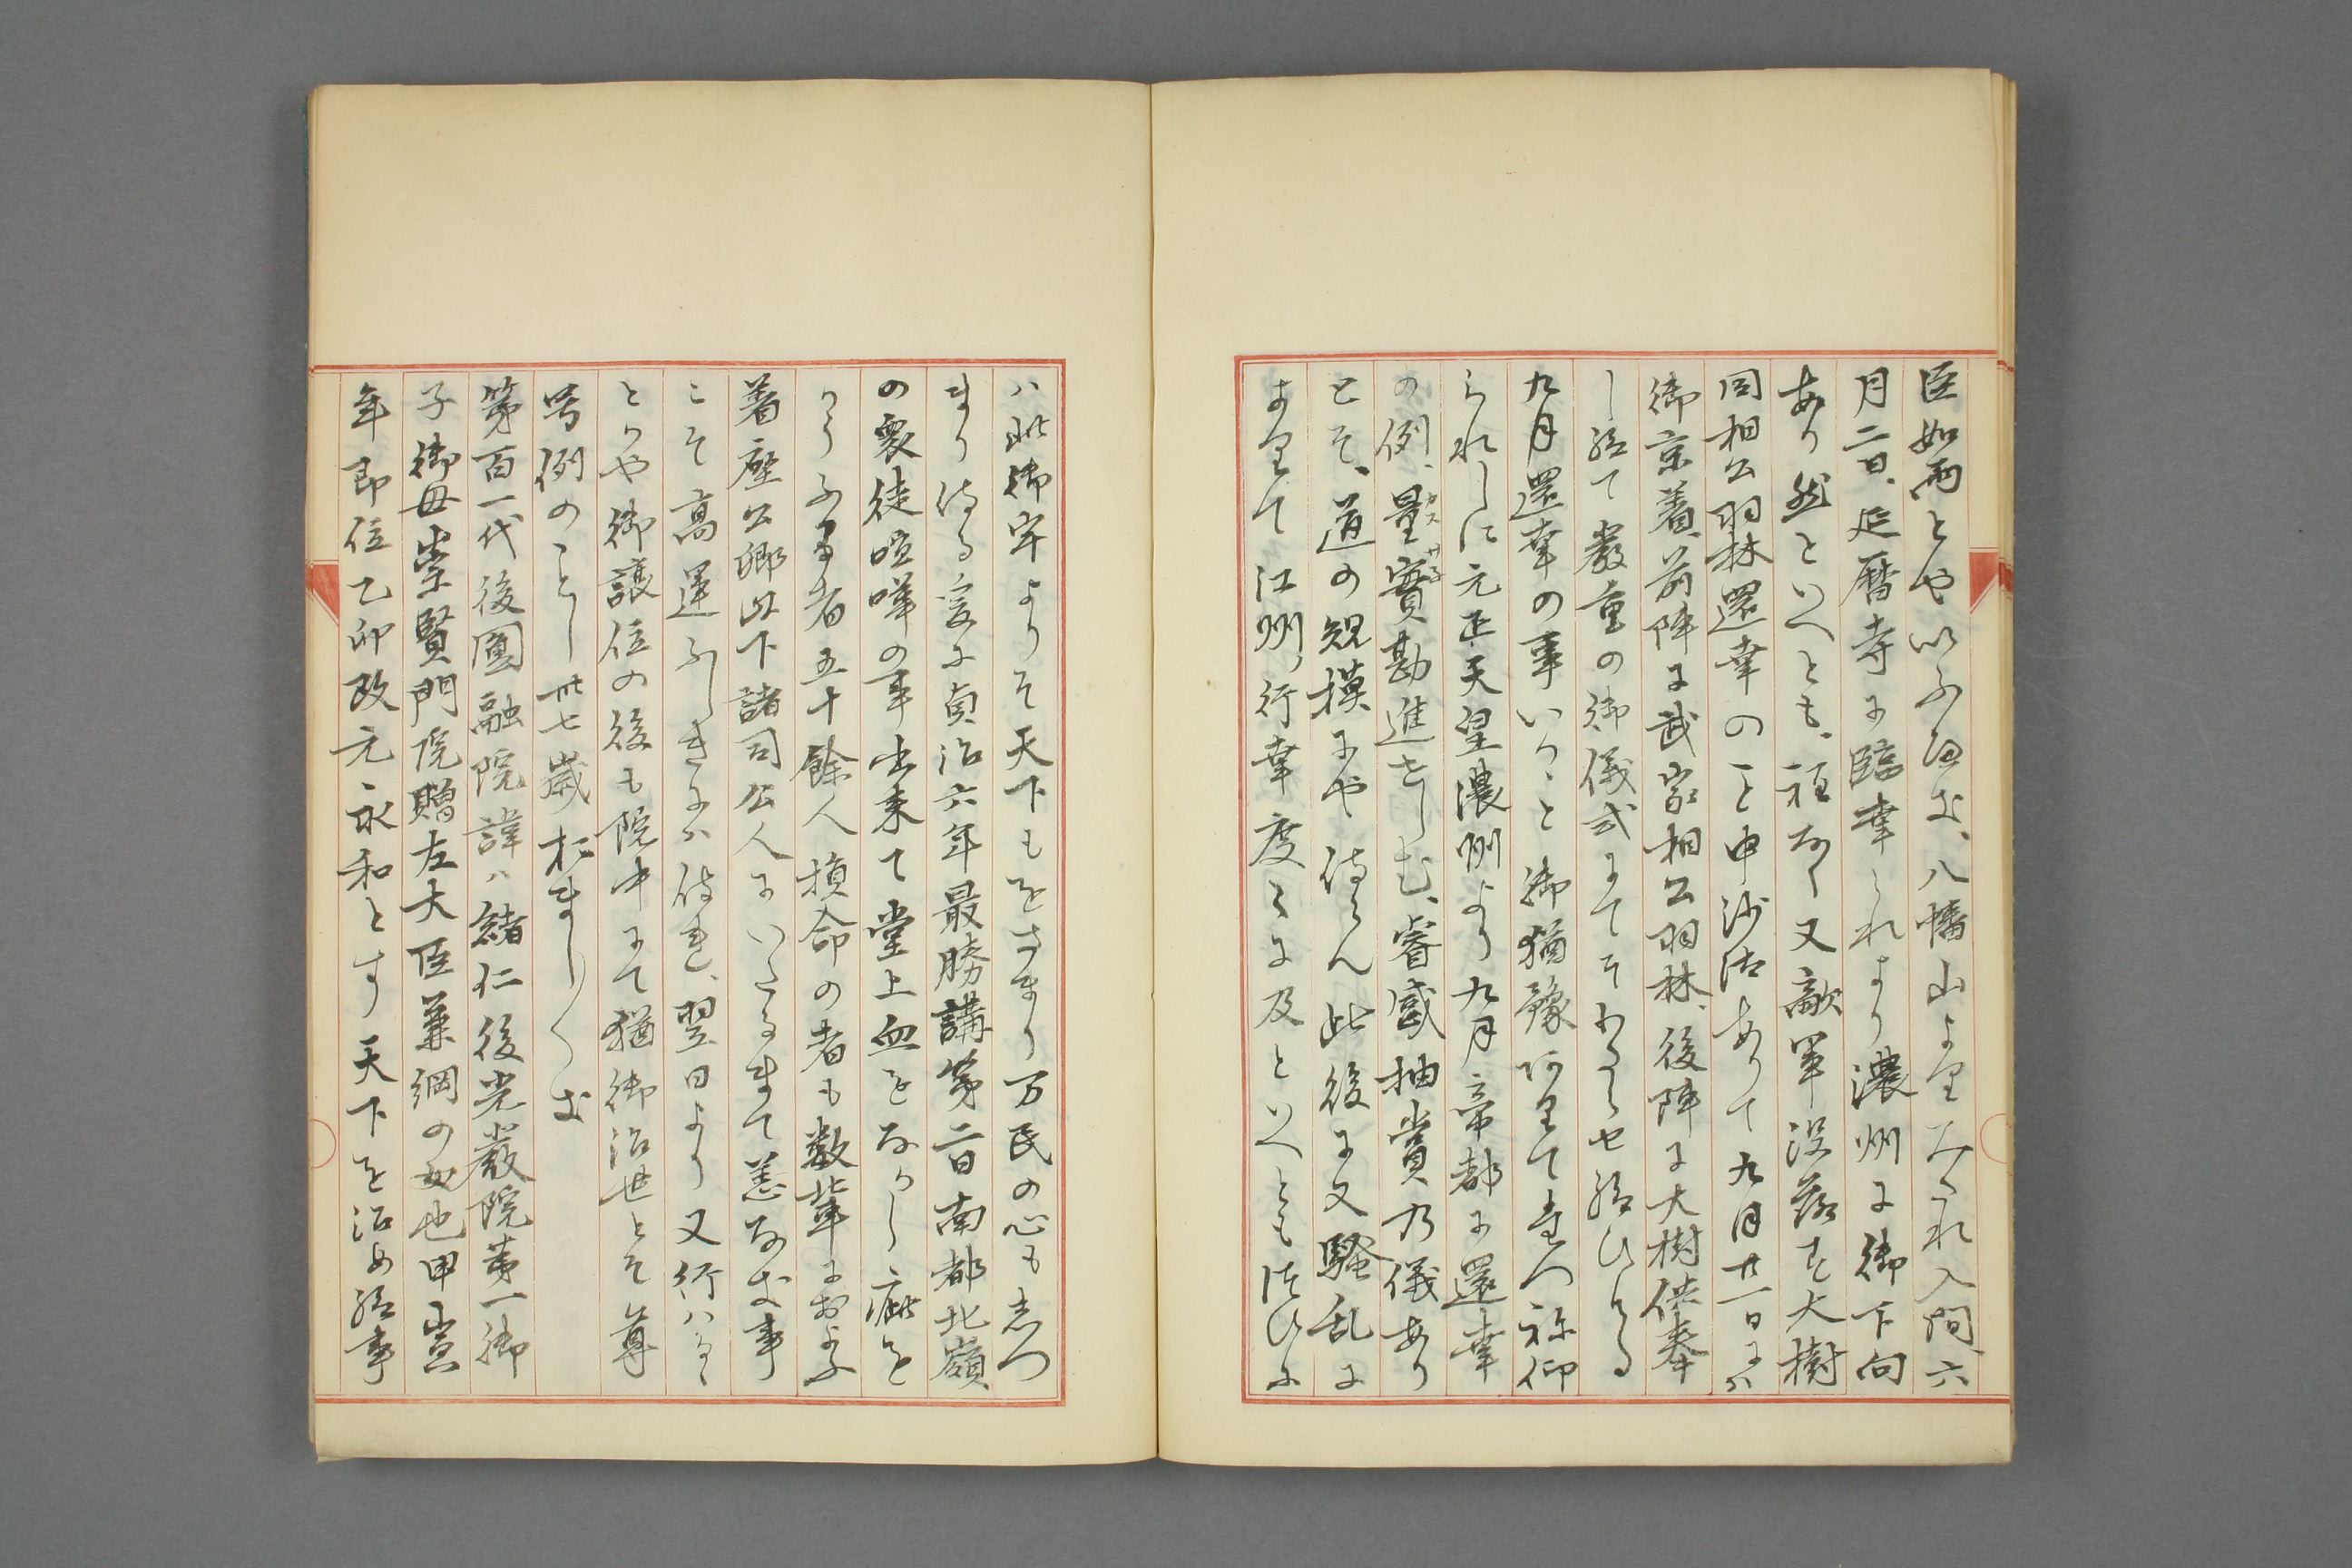 臣如雨とや以ふへき、八幡山よりみたれ入間、六
月二日、延暦寺に臨幸、これより濃州に御下向
あり然といへとも、程なく又敵軍没落す大樹
同相公羽林還幸のこと申沙汰ありて九月廿一日には
御京着、前陣に武家相公羽林、後陣に大樹供奉
し給て厳重の御儀式にてそわたらせ給ひける
九月還幸の事いかゝと御猶豫ありて重つね仰
られしに元正天皇濃州より九月帝都に還幸
の例、量實勘進せしむ、睿感抽賞乃儀あり
とそ、道の規模にや侍らん此後に又騒乱に
よりて江州行幸度々に及といへともつゐに
ハ此御宇よりそ天下もをさまり万民の心もしつ
まり侍る爰に貞治六年最勝講第二日南都北嶺
の衆徒喧嘩の事出来て堂上血をなかし疵を
かうふる者五十餘人損命の者も数輩におよふ
着座公卿以下諸司公人にいたるまて恙なき事
こそ高運ふしきには侍れ、翌日より又行ハる
とかや御譲位の後も院中にて猶御治世とそ尊
号例のことし卅七歳おはしましき
第百一代後圓融院諱ハ緒仁後光嚴院第一御
子御母崇賢門院贈左大臣兼綱の女也甲寅
年即位乙卯改元永和とす天下を治め給事